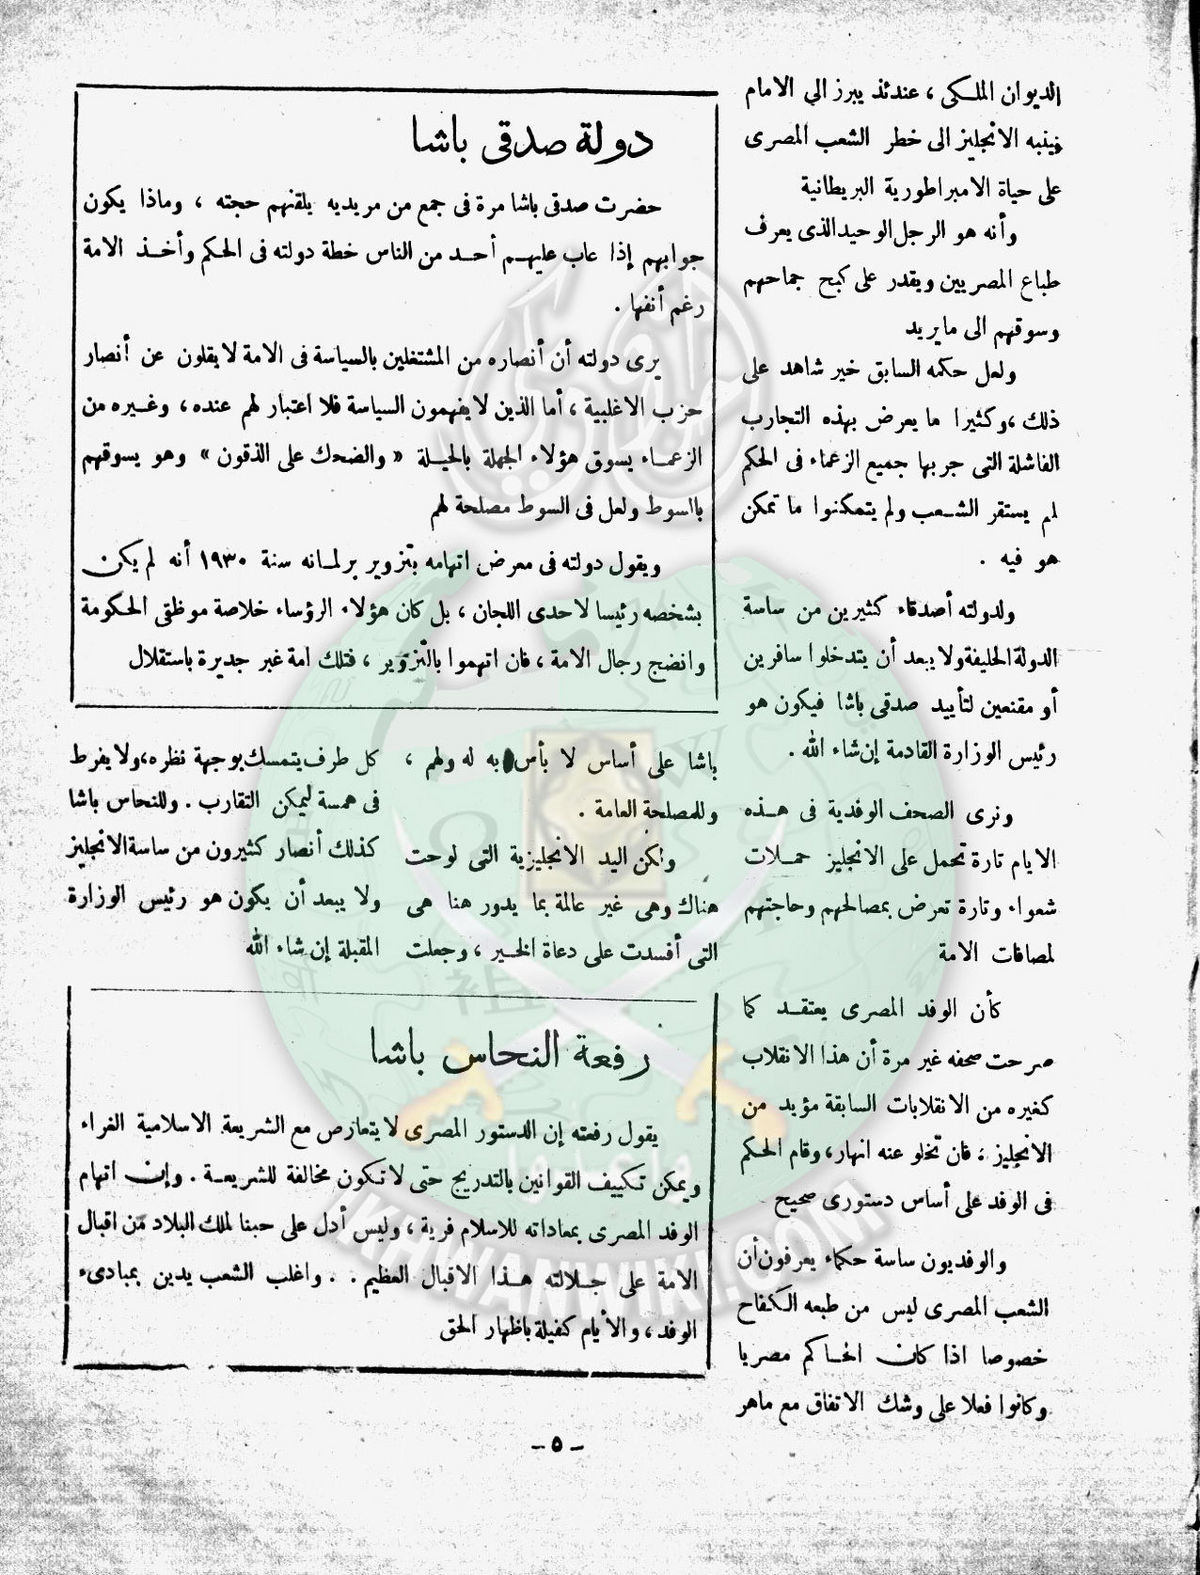 الديوان الملكى ، عندئذ يبرز الى الامام
فينبه الانجليز الى خطر الشعب المصرى
على حياة الامبراطورية البريطانية
وأنه هو الرجل الوحيد الذى يعرف
طباع المصريين ويقدر على كبح جماحهم
وسوقهم الى ما يريد
ولعل حكمه السابق خير شاهد على
ذلك ، وكثيرا ما يعرض بهذه التجارب
الفاشلة التى جربها جميع الزعماء فى الحكم
لم يستقر الشعب ولم يتمكنوا ما تمكن
هو فيه .
ولدولته أصدقاء كثيرين من ساسة
الدولة الحليفة ولا يبعد أن يتدخلوا سافرين
أو مقنعين لتأييد صدقى باشا فيكون هو
رئيس الوزارة القادمة إن شاء الله .
ونرى الصحف الوفدية فى هذه
الايام تارة تحمل على الانجليز حملات
شعواء وتارة تعرض بمصالحهم وحاجتهم
لمصافات الامة
كأن الوفد المصرى يعتقد كما
صرحت صحفه غير مرة أن هذا الانقلاب
كغيره من الانقلابات السابقة مؤيد من
الانجليز ، فان تخلو عنه انهار ، وقام الحكم
فى الوفد على أساس دستورى صحيح
والوفديون ساسة حكماء يعرفون أن
الشعب المصرى ليس من طبعه الكفاح
خصوصا اذا كان الحاكم مصريا
وكانوا فعلا على وشك الاتفاق مع ماهر
دولة صدقى باشا
حضرت صدقى باشا مرة فى جمع من مريديه يلقنهم حجته ، وماذا يكون
جوابهم إذا عاب عليهم أحد من الناس خطة دولته فى الحكم وأخذ الامة
رغم أنفها .
يرى دولته أن أنصاره من المشتغلين بالسياسة فى الامة لا يقلون عن أنصار
حزب الاغلبية ، أما الذين لا يفهمون السياسة فلا اعتبار لهم عنده ، وغيره من
الزعماء يسوق هؤلاء الجهلة بالحيلة « والضحك على الذقون » وهو يسوقهم
بالسوط ولعل فى السوط مصلحة لهم
ويقول دولته فى معرض اتهامه بتزوير برلمانه سنة ١٩٣٠ أنه لم يكن
بشخصه رئيسا لاحدى اللجان ، بل كان هؤلاء الرؤساء خلاصة موظفى الحكومة
وانضج رجال الامة ، فان اتهموا بالتزوير ، فتلك امة غير جديرة باستقلال
باشا على أساس لا بأس به له ولهم ،
وللمصلحة العامة .
ولكن اليد الانجليزية التى لوحت
هناك وهى غير عالمة بما يدور هنا هى
التى أفسدت على دعاة الخير ، وجعلت
كل طرف يتمسك بوجهة نظره ، ولا يفرط
فى همسة ليمكن التقارب . وللنحاس باشا
كذلك أنصار كثيرون من ساسة الانجليز
ولا يبعد أن يكون هو رئيس الوزارة
المقبلة إن شاء الله
رفعة النحاس باشا
يقول رفعته إن الدستور المصرى لا يتعارض مع الشريعة الاسلامية الغراء
ويمكن تكييف القوانين بالتدريج حتى لا تكون مخالفة للشريعة . وإن اتهام
الوفد المصرى بمعاداته للاسلام فرية ، وليس أدل على حبنا لملك البلاد من اقبال
الامة على جلالته هذا الاقبال العظيم . . واغلب الشعب يدين بمبادىء
الوفد ، والأيام كفيلة باظهار الحق
- ٥ -
وأعدوا
IKHWANWIKI.COM